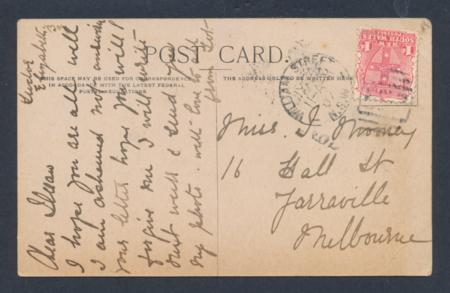 POST CARD.
THIS SPACE MAY BE USED FOR CORRESPONDENCE
IN ACCORDANCE WITH THE LATEST FEDERAL
POSTAL REGULATIONS
THE ADDRESS ONLY TO BE WRITTEN HERE
NEW
SOUTH WALES
WILLIAM STREET
N.S.W
Miss I. Mooney
16 Hall St
Yarraville
Melbourne
Elizabeth
Dear
I hope you are all well
I am ashamed not answering
your letter hope you will
forgive me I will write
next week & send you
my photo. with love to all
from